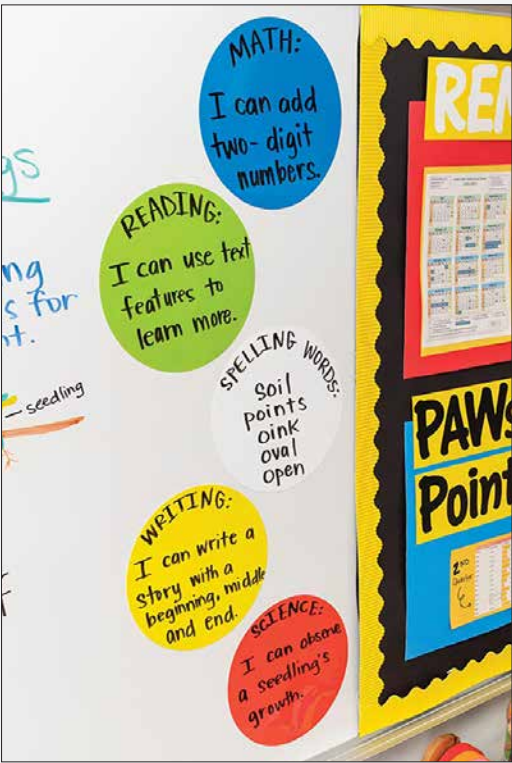 MATH:
I can add
two-digit
numbers.
READING:
I can use text
features to
learn more.
SPELLING WORDS:
soil
points
oink
oval
open
WRITING:
I can write a
story with a
beginning, middle
and end.
SCIENCE:
I can observe
a seedling's
growth.
gs
ng
s for
nt.
seedling
REM
PAWs
Point
2ND
Quarter